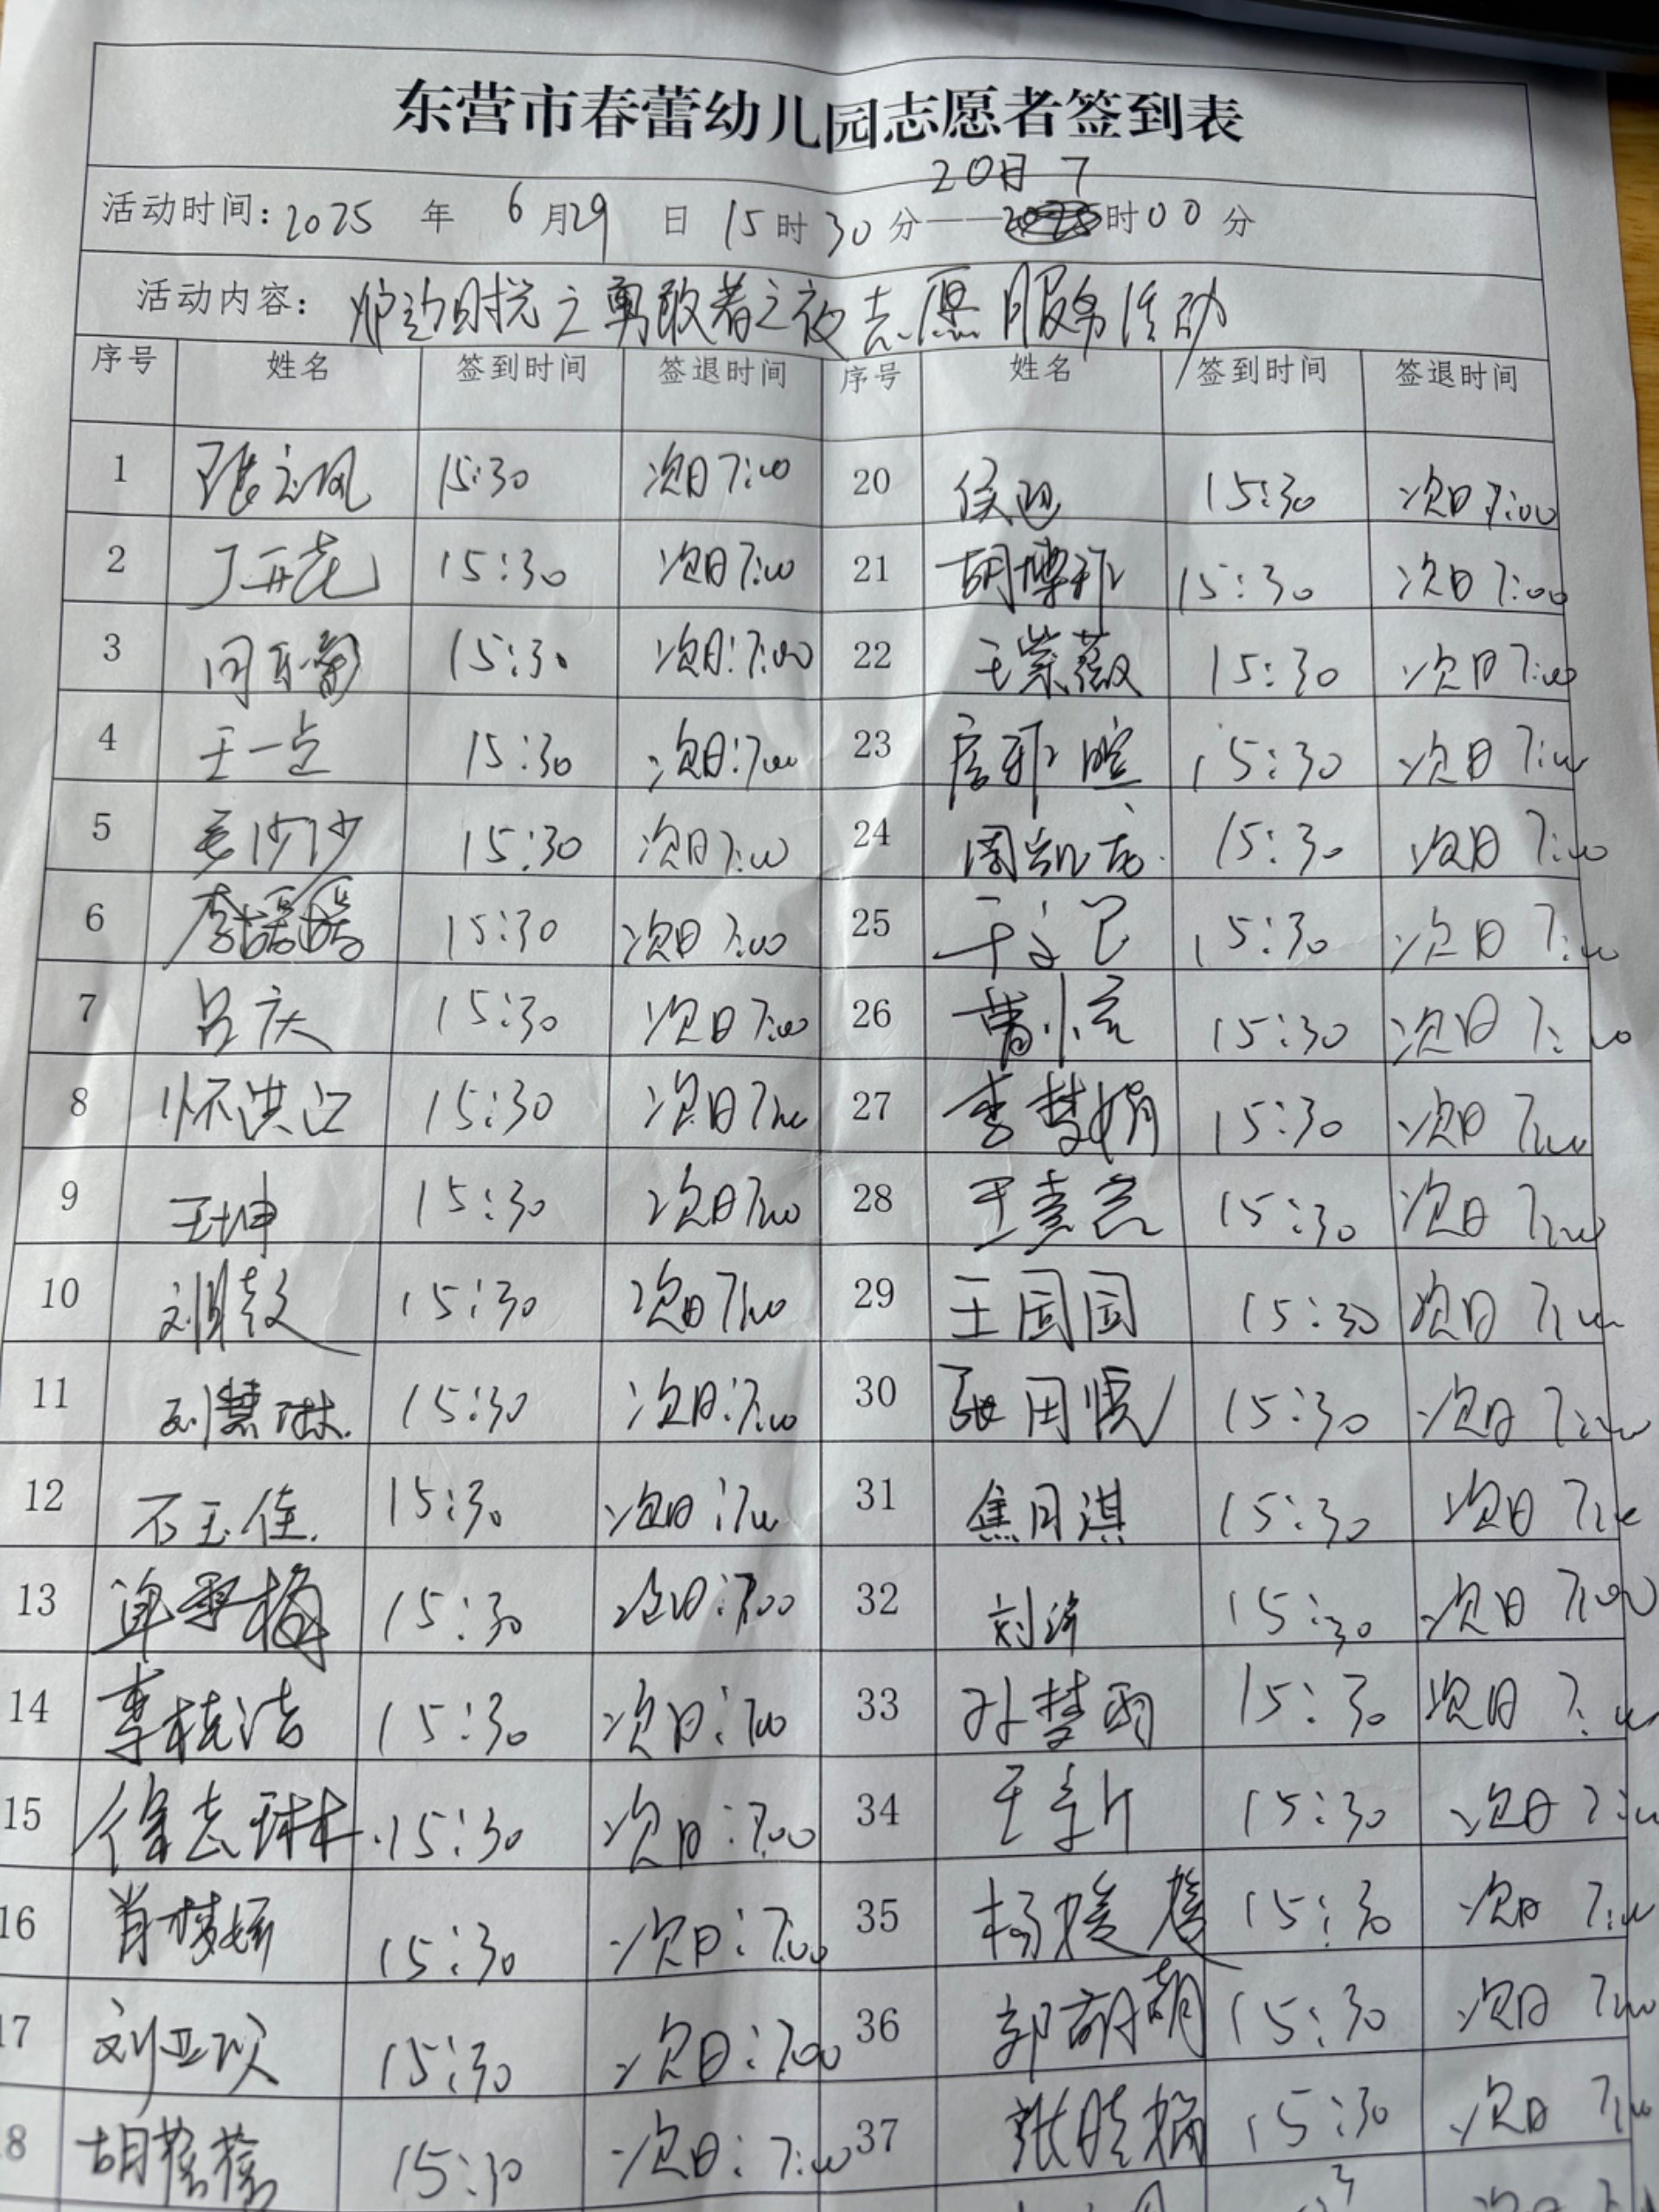 东营市春蕾幼儿园志愿者签到表
20日 7
活动时间：2025 年 6月29 日 15时30分——时00分
活动内容： 之勇敢者之夜志愿服务活动
序号 姓名 签到时间 签退时间 序号 姓名 签到时间 签退时间
1 15:30 次日7:00 20 侯 15:30 次日7:00
2 丁 15:30 次日7:00 21 胡 15:30 次日7:00
3 15:30 次日:7:00 22 王紫薇 15:30 次日7:00
4 王一点 15:30 次日:7:00 23 15:30 次日7:00
5 沙沙 15:30 次日7:00 24 周凯 15:30 次日7:00
6 李 15:30 次日7:00 25 15:30 次日7:00
7 吕庆 15:30 次日7:00 26 15:30 次日7:00
8 怀洪江 15:30 次日7:00 27 李梦娟 15:30 次日7:00
9 王坤 15:30 次日7:00 28 王 15:30 次日7:00
10 刘 15:30 次日7:00 29 王园园 15:30 次日7:00
11 刘慧琳 15:30 次日:7:00 30 张 15:30 次日7:00
12 石玉佳 15:30 次日:7:00 31 焦月淇 15:30 次日7:00
13 15:30 次日:7:00 32 刘 15:30 次日7:00
14 李 15:30 次日:7:00 33 孙梦雨 15:30 次日7:00
15 徐志琳 15:30 次日:7:00 34 王新 15:30 次日7:00
16 肖梦妍 15:30 次日:7:00 35 杨 15:30 次日7:00
17 刘亚 15:30 次日:7:00 36 郭胡 15:30 次日7:00
8 胡蓉蓉 15:30 次日:7:00 37 张晓娟 15:30 次日7:00